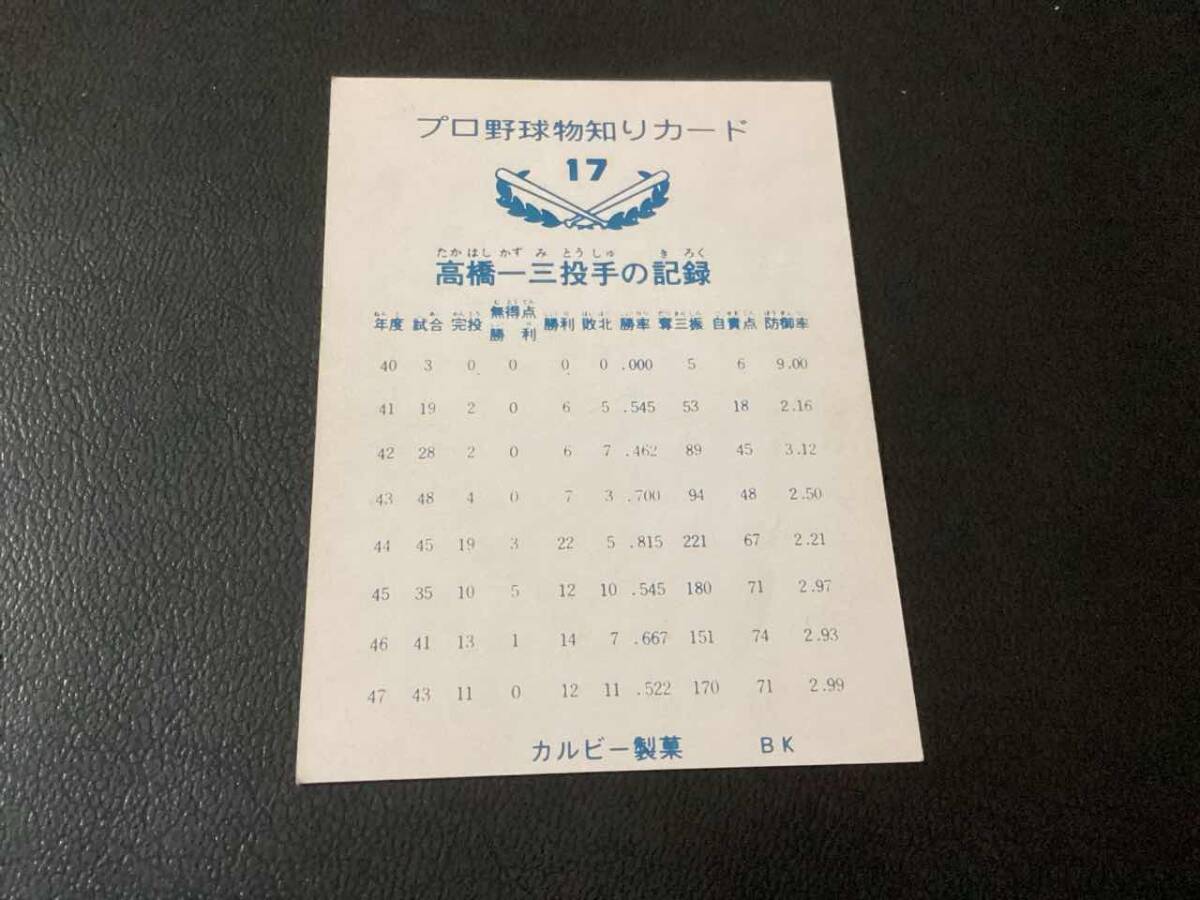 プロ野球物知りカード
17
たかはしかずみとうしゅ きろく
高橋一三投手の記録
年度 試合 完投 無得点勝利 勝利 敗北 勝率 奪三振 自責点 防御率
40 3 0 0 0 0 .000 5 6 9.00
41 19 2 0 6 5 .545 53 18 2.16
42 28 2 0 6 7 .462 89 45 3.12
43 48 4 0 7 3 .700 94 48 2.50
44 45 19 3 22 5 .815 221 67 2.21
45 35 10 5 12 10 .545 180 71 2.97
46 41 13 1 14 7 .667 151 74 2.93
47 43 11 0 12 11 .522 170 71 2.99
カルビー製菓 BK